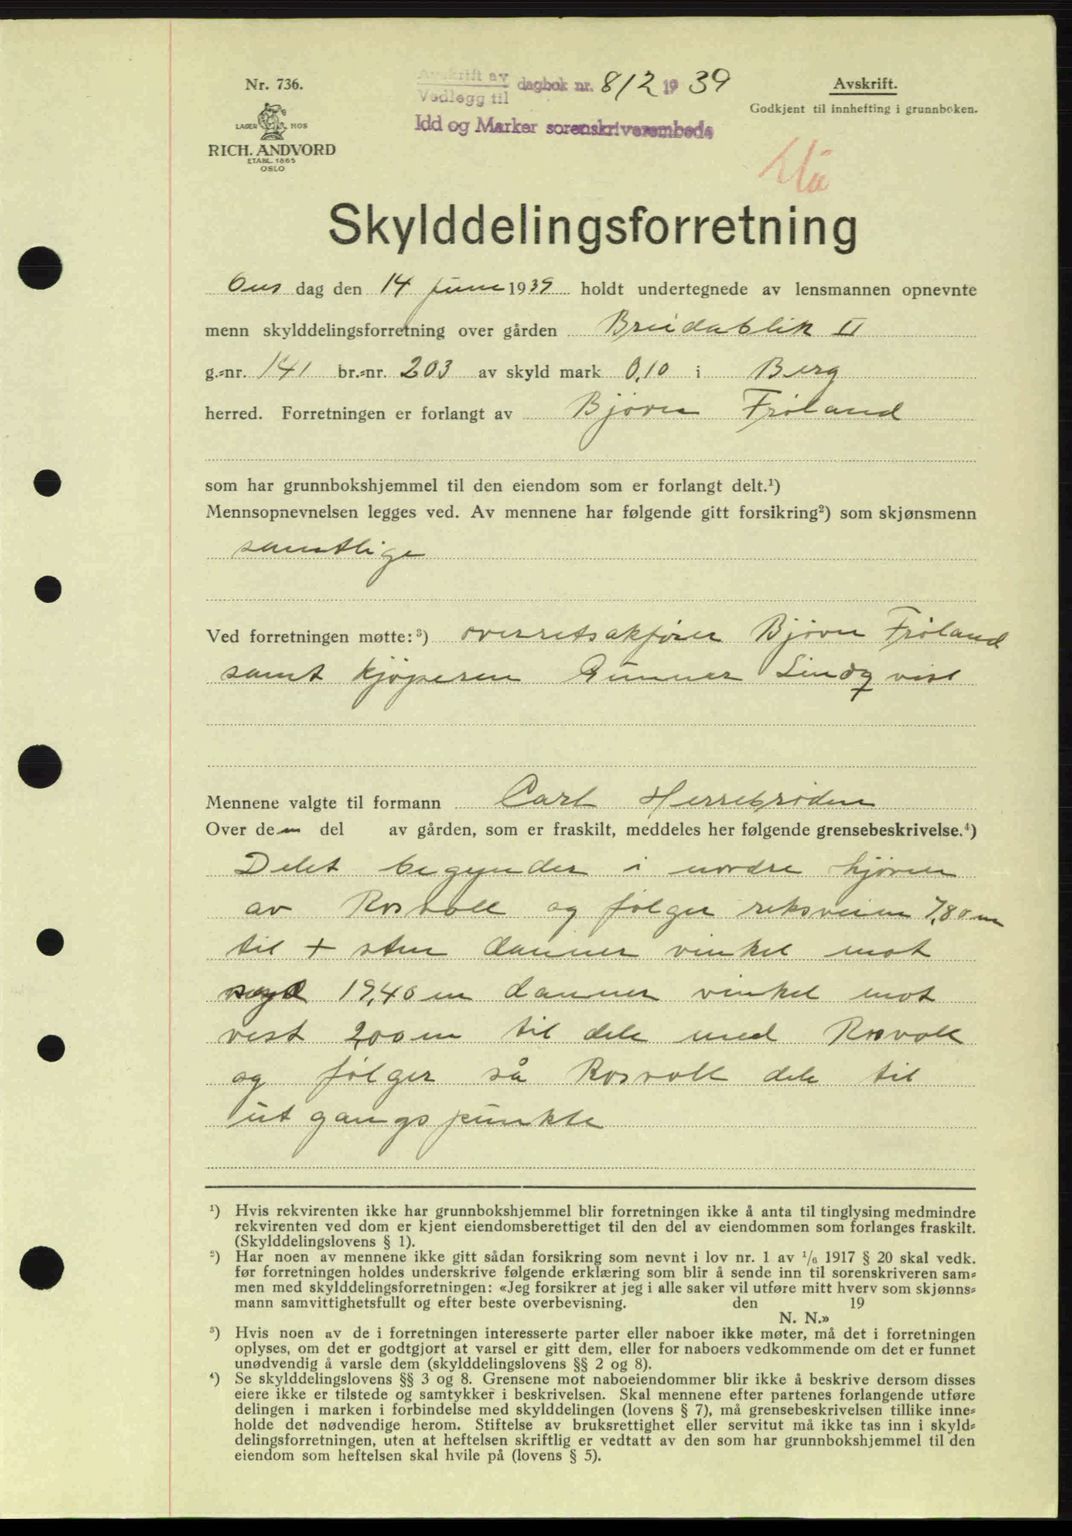 Nr. 736.
LAGER HOS
RICH. ANDVORD
ETABL. 1865
OSLO
Avskrift av
Vedlegg til dagbok nr. 812 1939
Idd og Marker sorenskriverembede
Avskrift.
Godkjent til innhefting i grunnboken.
Skylddelingsforretning
Ons dag den 14 juni 1939 holdt undertegnede av lensmannen opnevnte
menn skylddelingsforretning over gården Breidablik II
g.-nr. 141 br.-nr. 203 av skyld mark 0,10 i Berg
herred. Forretningen er forlangt av Bjørn Frøland
som har grunnbokshjemmel til den eiendom som er forlangt delt.¹)
Mennsopnevnelsen legges ved. Av mennene har følgende gitt forsikring²) som skjønsmenn
samtlige
Ved forretningen møtte:³) overretsakfører Bjørn Frøland
samt kjøperen Gunnar Lindqvist
Mennene valgte til formann Carl Herrebrøden
Over den del av gården, som er fraskilt, meddeles her følgende grensebeskrivelse.⁴)
Delet begynder i nordre hjørne
av Rosvoll og følger riksveien 7,80 m
til + sten danner vinkel mot
syd 19,40 m danner vinkel mot
vest 2,00 m til dele med Rosvoll
og følger så Rosvoll dele til
utgangspunkte
¹) Hvis rekvirenten ikke har grunnbokshjemmel blir forretningen ikke å anta til tinglysing medmindre
rekvirenten ved dom er kjent eiendomsberettiget til den del av eiendommen som forlanges fraskilt.
(Skylddelingslovens § 1).
²) Har noen av mennene ikke gitt sådan forsikring som nevnt i lov nr. 1 av ¹/₆ 1917 § 20 skal vedk.
før forretningen holdes underskrive følgende erklæring som blir å sende inn til sorenskriveren sam-
men med skylddelingsforretningen: «Jeg forsikrer at jeg i alle saker vil utføre mitt hverv som skjønns-
mann samvittighetsfullt og efter beste overbevisning. den 19
N. N.»
³) Hvis noen av de i forretningen interesserte parter eller naboer ikke møter, må det i forretningen
oplyses, om det er godtgjort at varsel er gitt dem, eller for naboers vedkommende om det er funnet
unødvendig å varsle dem (skylddelingslovens §§ 2 og 8).
⁴) Se skylddelingslovens §§ 3 og 8. Grensene mot naboeiendommer blir ikke å beskrive dersom disses
eiere ikke er tilstede og samtykker i beskrivelsen. Skal mennene efter partenes forlangende utføre
delingen i marken i forbindelse med skylddelingen (lovens § 7), må grensebeskrivelsen tillike inne-
holde det nødvendige herom. Stiftelse av bruksrettighet eller servitut må ikke tas inn i skyld-
delingsforretningen, uten at heftelsen skriftlig er vedtatt av den som har grunnbokshjemmel til den
eiendom som heftelsen skal hvile på (lovens § 5).